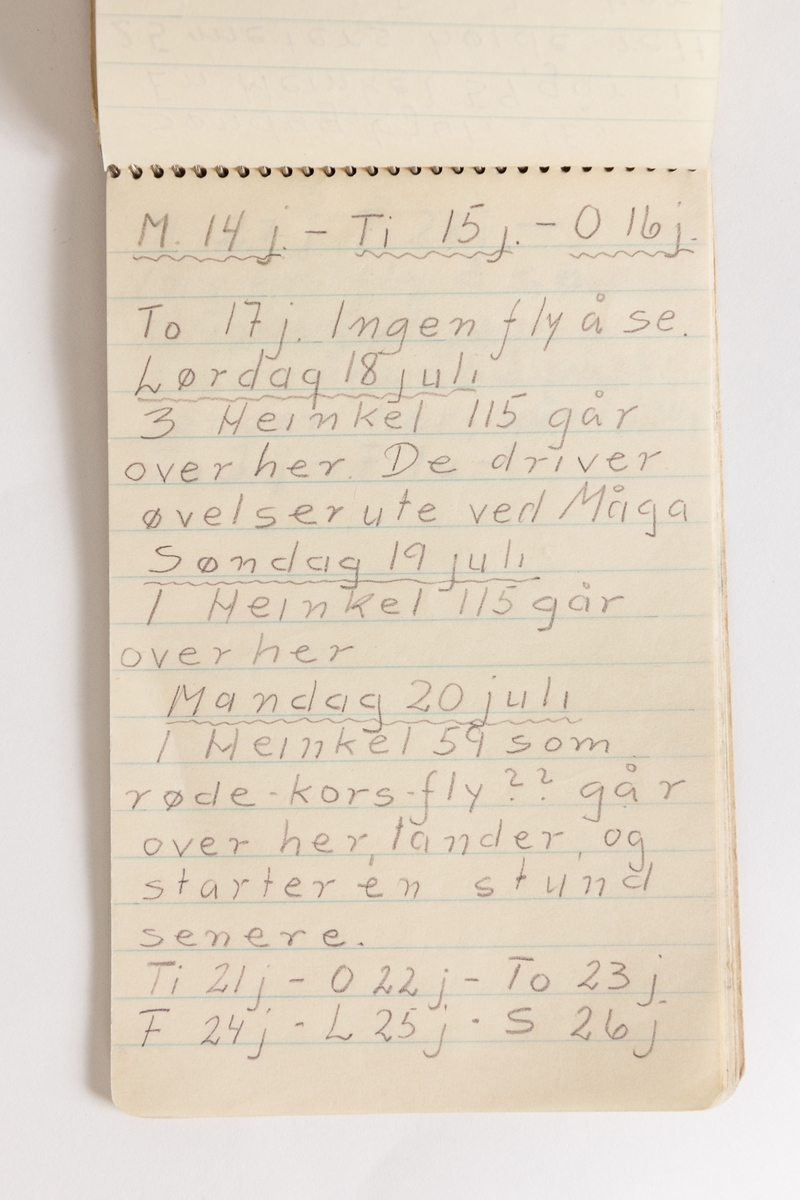 M. 14 j. - Ti 15 j. - O 16 j.
To 17 j. Ingen fly å se.
Lørdag 18 juli
3 Heinkel 115 går
over her. De driver
øvelser ute ved Måga
Søndag 19 juli
1 Heinkel 115 går
over her
Mandag 20 juli
1 Heinkel 59 som
røde-kors-fly?? går
over her, lander, og
starter en stund
senere.
Ti 21 j - O 22 j - To 23 j
F 24 j - L 25 j - S 26 j